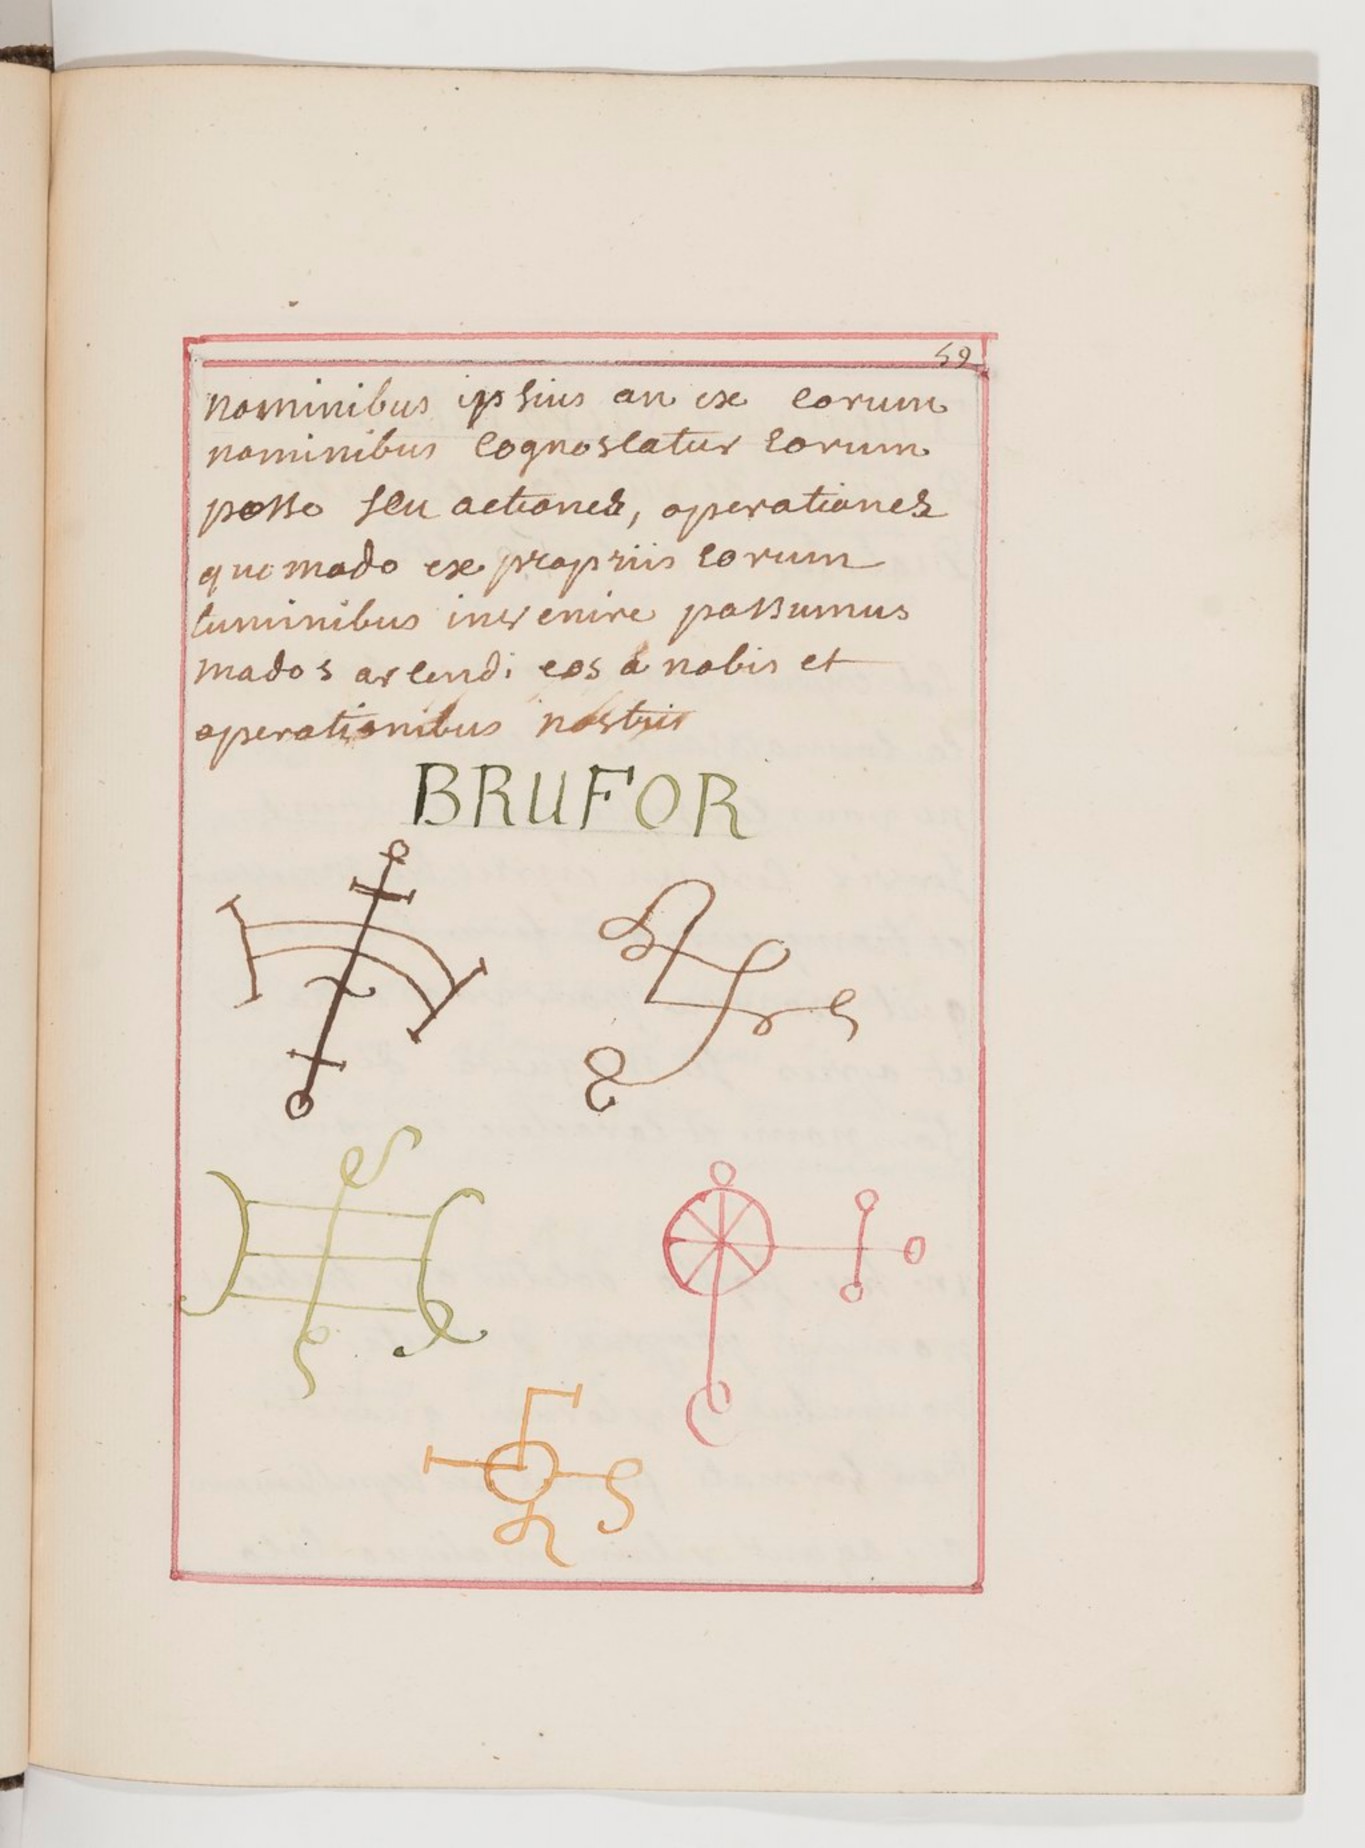 59
nominibus ipsius an ex eorum
nominibus cognoscatur eorum
posse seu actiones, operationes
quomodo ex propriis eorum
luminibus invenire possumus
modos arcendi eos a nobis et
operationibus nostris
BRUFOR